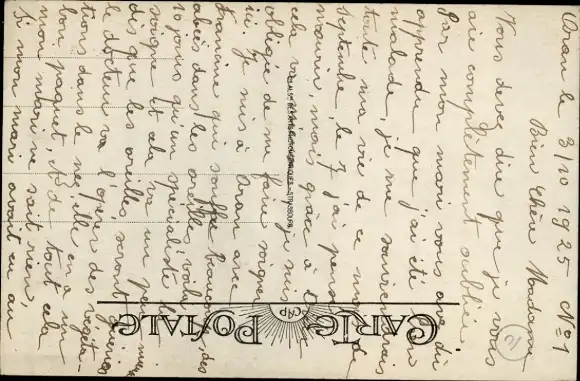 Oran le 3/10 1925 N°1
Bien Chère Madame
Vous devez dire que je vous
aie complètement oubliée.
Par mon mari vous avez du
apprendre que j'ai été bien
malade, je me souviendrais
toute ma vie de ce mois de
septembre, le 7 j'ai pensé
mourir, mais grâce à
cela va mieux je suis
obligée de me faire soigner
ici. Je suis à Oran avec
Francine qui souffre beaucoup des
abcès dans les oreilles, voilà
10 jours qu'un spécialiste la
soigne et cela va un peu mieux
dès que les oreilles seront guéries
le docteur va l'opérer des végéta-
tions dans le nez, elle en a un
bon paquet, de tout cela
mon mari ne sait rien,
si mon mari avait eu au
CARTE POSTALE
CAP